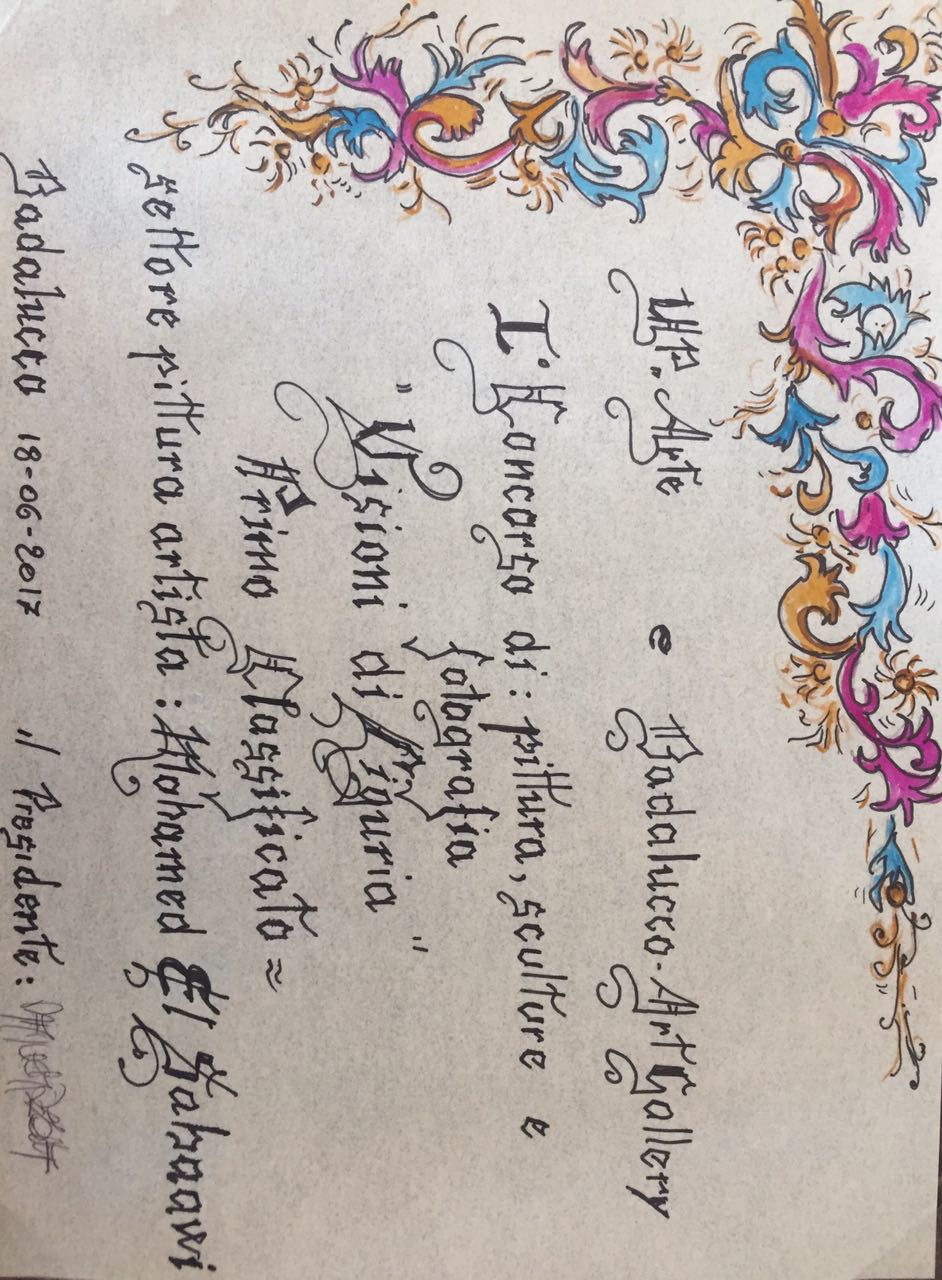 UP. Arte e Badalucco-Art Gallery
I° Concorso di: pittura, sculture e
fotografia
"Visioni di Liguria"
Primo Classificato =
settore pittura artista: Mohamed El
Badalucco 18-06-2017 il Presidente: